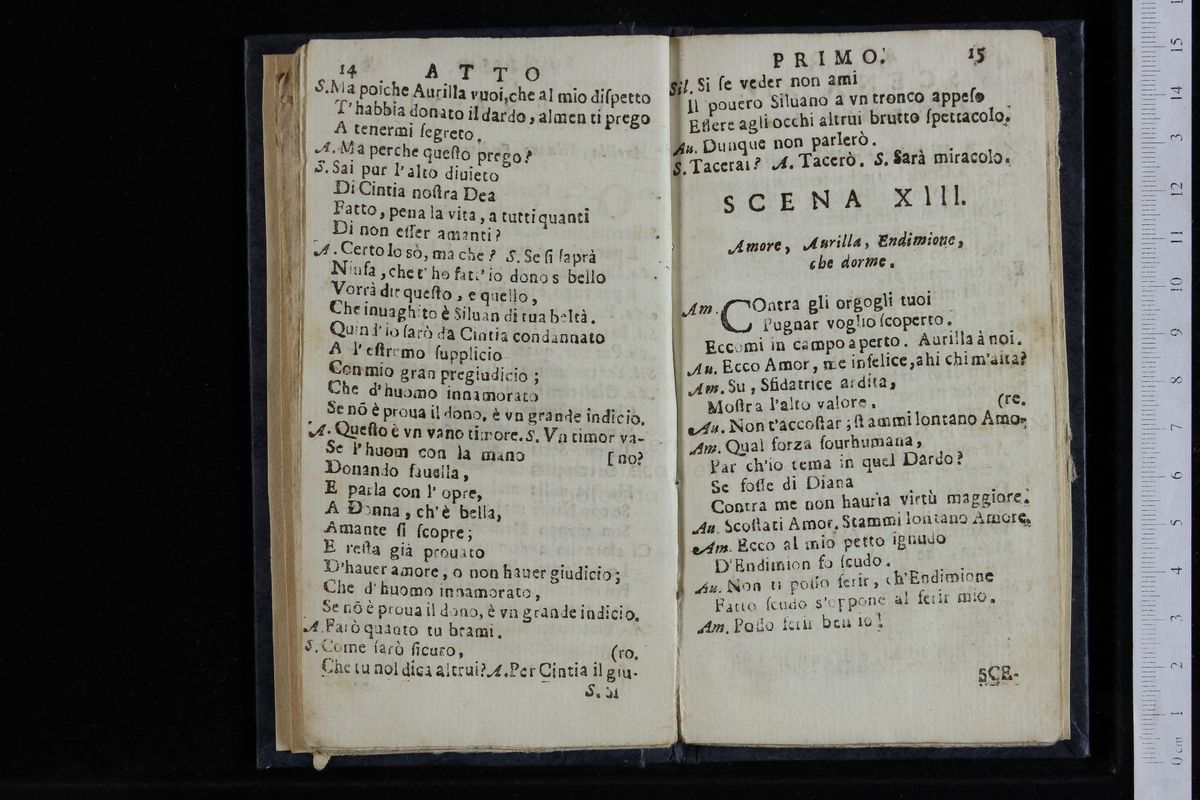 14 ATTO
S. Ma poiche Aurilla vuoi, che al mio diſpetto
T'habbia donato il dardo, almen ti prego
A tenermi ſegreto.
A. Ma perche queſto prego?
S. Sai pur l'alto diuieto
Di Cintia noſtra Dea
Fatto, pena la vita, a tutti quanti
Di non eſſer amanti?
A. Certo lo sò, ma che? S. Se ſi ſaprà
Ninfa, che t'ho fatt'io dono s bello
Vorrà dir queſto, e quello,
Che inuaghito è Siluan di tua beltà.
Quind'io ſarò da Cintia condannato
A l'eſtremo ſupplicio
Con mio gran pregiudicio;
Che d'huomo innamorato
Se nõ è proua il dono, è vn grande indicio.
A. Queſto è vn vano timore. S. Vn timor va-
Se l'huom con la mano [no?
Donando fauella,
E parla con l'opre,
A Donna, ch'è bella,
Amante ſi ſcopre;
E reſta già prouato
D'hauer amore, o non hauer giudicio;
Che d'huomo innamorato,
Se nõ è proua il dono, è vn grande indicio.
A. Farò quanto tu brami.
S. Come ſarò ſicuro, (ro.
Che tu nol dica altrui? A. Per Cintia il giu-
S. Si
PRIMO. 15
Sil. Si ſe veder non ami
Il pouero Siluano a vn tronco appeſo
Eſſere agli occhi altrui brutto ſpettacolo.
Au. Dunque non parlerò.
S. Tacerai? A. Tacerò. S. Sarà miracolo.
SCENA XIII.
Amore, Aurilla, Endimione,
che dorme.
Am. COntra gli orgogli tuoi
Pugnar voglio ſcoperto.
Eccomi in campo aperto. Aurilla à noi.
Au. Ecco Amor, me infelice, ahi chi m'aita?
Am. Su, Sfidatrice ardita,
Moſtra l'alto valore. (re.
Au. Non t'accoſtar; ſtammi lontano Amo-
Am. Qual forza ſourhumana,
Far ch'io tema in quel Dardo?
Se foſſe di Diana
Contra me non hauria virtù maggiore.
Au. Scoſtati Amor. Stammi lontano Amore.
Am. Ecco al mio petto ignudo
D'Endimion fo ſcudo.
Au. Non ti poſſo ferir, ch'Endimione
Fatto ſcudo s'oppone al ferir mio.
Am. Poſſo ferir ben io!
SCE-